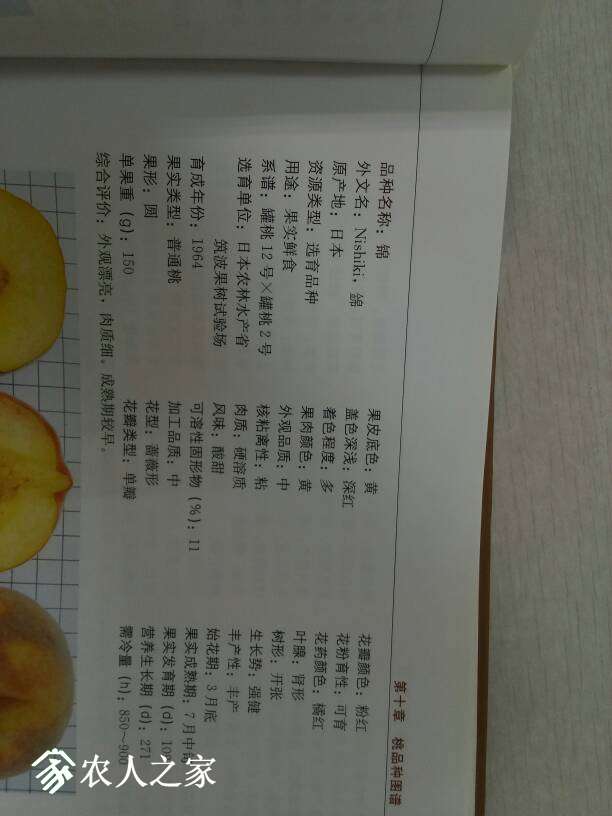 第十章 桃品种图谱
品种名称：锦
外文名：Nishiki，錦
原产地：日本
资源类型：选育品种
用途：果实鲜食
系谱：罐桃12号×罐桃2号
选育单位：日本农林水产省
筑波果树试验场
育成年份：1964
果实类型：普通桃
果形：圆
单果重(g)：150
果皮底色：黄
盖色深浅：深红
着色程度：多
果肉颜色：黄
外观品质：中
核粘离性：粘
肉质：硬溶质
风味：酸甜
可溶性固形物(%)：11
加工品质：中
花型：蔷薇形
花瓣类型：单瓣
花瓣颜色：粉红
花粉育性：可育
花药颜色：橘红
叶腺：肾形
树形：开张
生长势：强健
丰产性：丰产
始花期：3月底
果实成熟期：7月中旬
果实发育期(d)：
营养生长期(d)：271
需冷量(h)：850～900
综合评价：外观漂亮，肉质细。成熟期较早。
农人之家